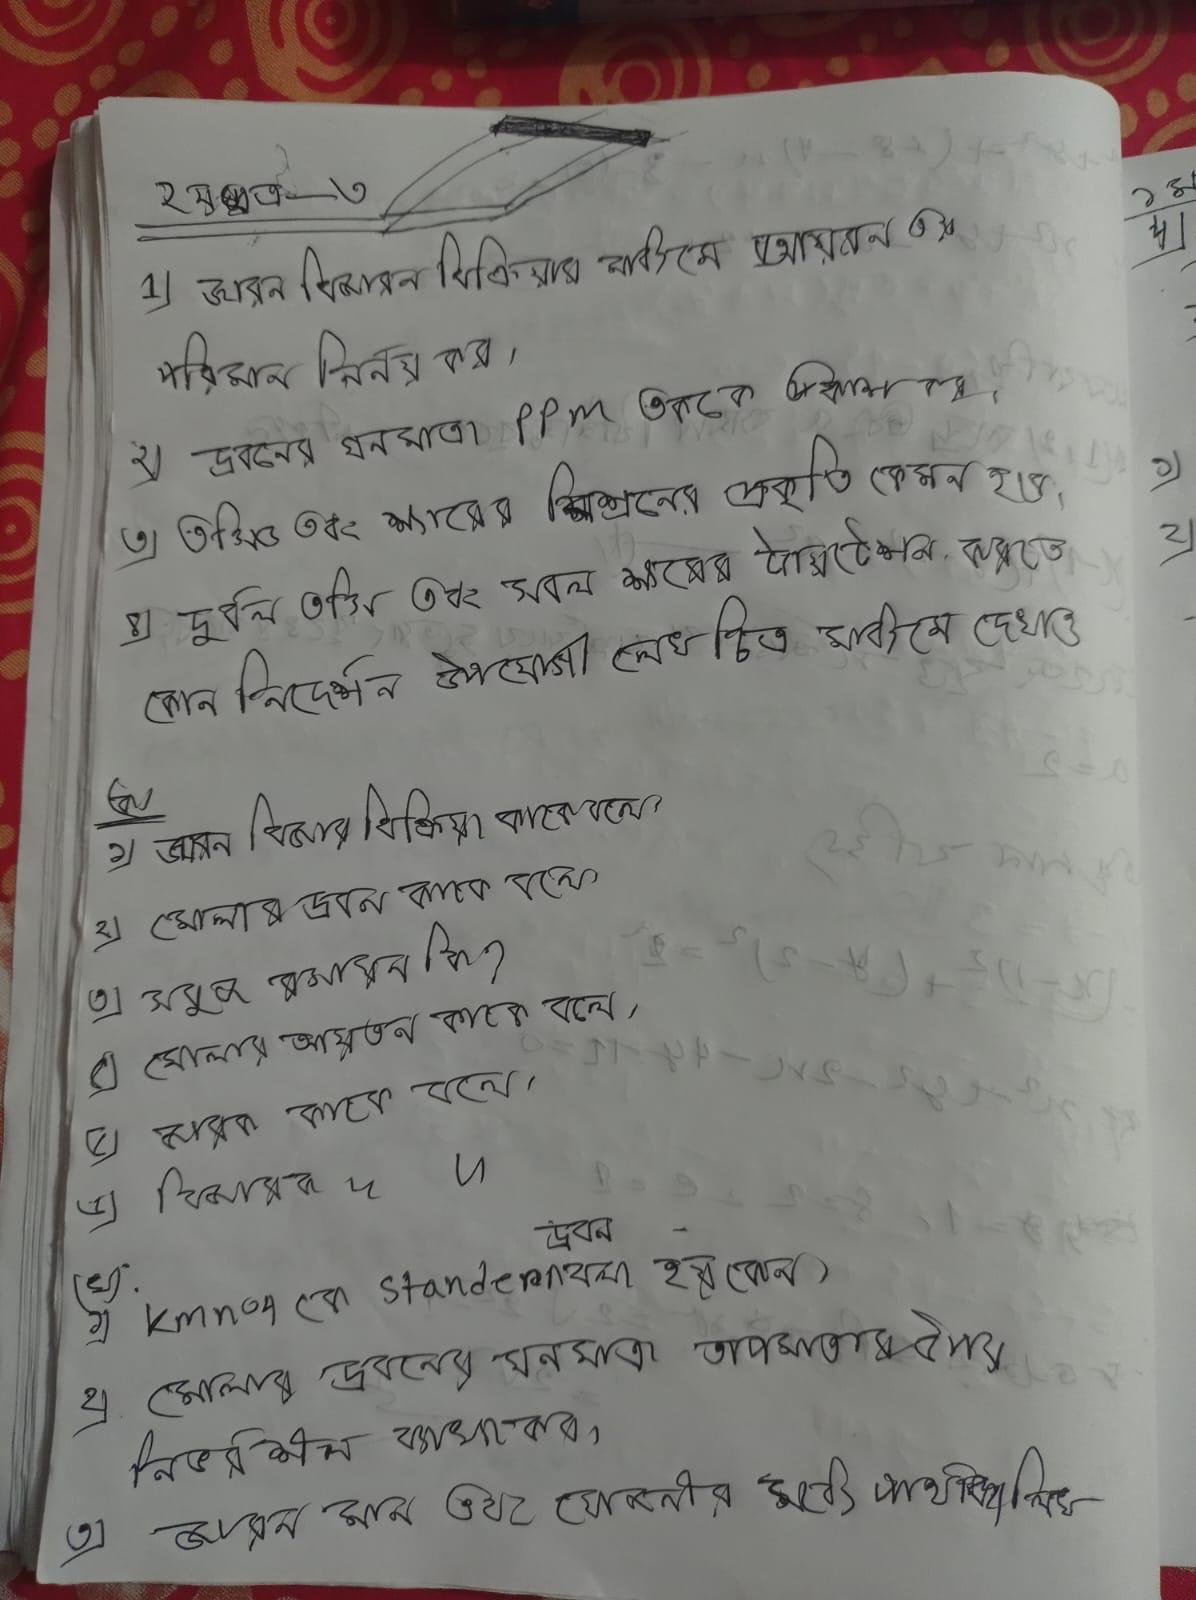 ২য়পত্র — ৩
1) জারন বিজারন বিক্রিয়ার মাধ্যমে আয়রন এর
পরিমান নির্নয় কর,
২) দ্রবনের ঘনমাত্রা PPM এককে প্রকাশ কর,
৩) এসিড এবং ক্ষারের মিশ্রনের প্রকৃতি কেমন হবে,
৪) দুর্বল এসিড এবং সবল ক্ষারের টায়ট্রেশন করতে
কোন নির্দেশন উপযোগী লেখ চিত্র মাধ্যমে দেখাও
ক)
১) জারন বিজার বিক্রিয়া কাকে বলে?
২) মোলার দ্রবন কাকে বলে
৩) সবুজ রসায়ন কি?
৪) মোলার আয়তন কাকে বলে,
৫) জারক কাকে বলে,
৬) বিজারক " "
(খ)
দ্রবন
১) Kmno4 কে standern বলা হয় কেন?
২) মোলার দ্রবনের ঘনমাত্রা তাপমাত্রার উপর
নির্ভরশীল ব্যাখ্যা কর,
৩) জারন মান এবং যোজনীর মধ্যে পার্থক্য লিখ